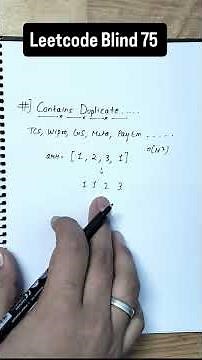 Leetcode Blind 75
#] Contains Duplicate.....
TCS, Wipro, GS, Meta, PayTm ......
O(N²)
arr = [1, 2, 3, 1]
↓
1 1 2 3